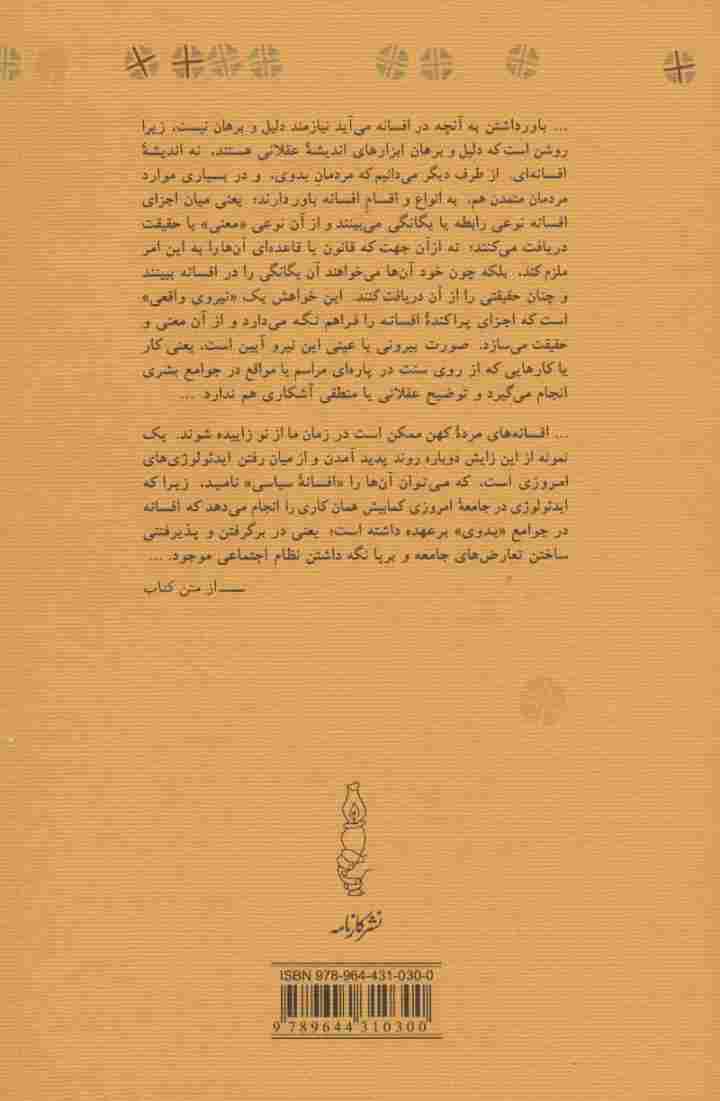 ... باورداشتن به آنچه در افسانه می‌آید نیازمند دلیل و برهان نیست، زیرا
روشن است که دلیل و برهان ابزارهای اندیشهٔ عقلانی هستند، نه اندیشهٔ
افسانه‌ای. از طرف دیگر می‌دانیم که مردمان بدوی، و در بسیاری موارد
مردمان متمدن هم، به انواع و اقسام افسانه باور دارند؛ یعنی میان اجزای
افسانه نوعی رابطه یا یگانگی می‌بینند و از آن نوعی «معنی» یا حقیقت
دریافت می‌کنند؛ نه ازآن جهت که قانون یا قاعده‌ای آن‌ها را به این امر
ملزم کند، بلکه چون خود آن‌ها می‌خواهند آن یگانگی را در افسانه ببینند
و چنان حقیقتی را از آن دریافت کنند. این خواهش یک «نیروی واقعی»
است که اجزای پراکندهٔ افسانه را فراهم نگه می‌دارد و از آن معنی و
حقیقت می‌سازد. صورت بیرونی یا عینی این نیرو آیین است، یعنی کار
یا کارهایی که از روی سنت در پاره‌ای مراسم یا مواقع در جوامع بشری
انجام می‌گیرد و توضیح عقلانی یا منطقی آشکاری هم ندارد ...
... افسانه‌های مردهٔ کهن ممکن است در زمان ما از نو زاییده شوند. یک
نمونه از این زایش دوباره روند پدید آمدن و از میان رفتن ایدئولوژی‌های
امروزی است، که می‌توان آن‌ها را «افسانهٔ سیاسی» نامید. زیرا که
ایدئولوژی در جامعهٔ امروزی کمابیش همان کاری را انجام می‌دهد که افسانه
در جوامع «بدوی» برعهده داشته است؛ یعنی در برگرفتن و پذیرفتنی
ساختن تعارض‌های جامعه و برپا نگه داشتن نظام اجتماعی موجود. ...
— از متن کتاب
نشر کارنامه
ISBN 978-964-431-030-0
9 789644 310300